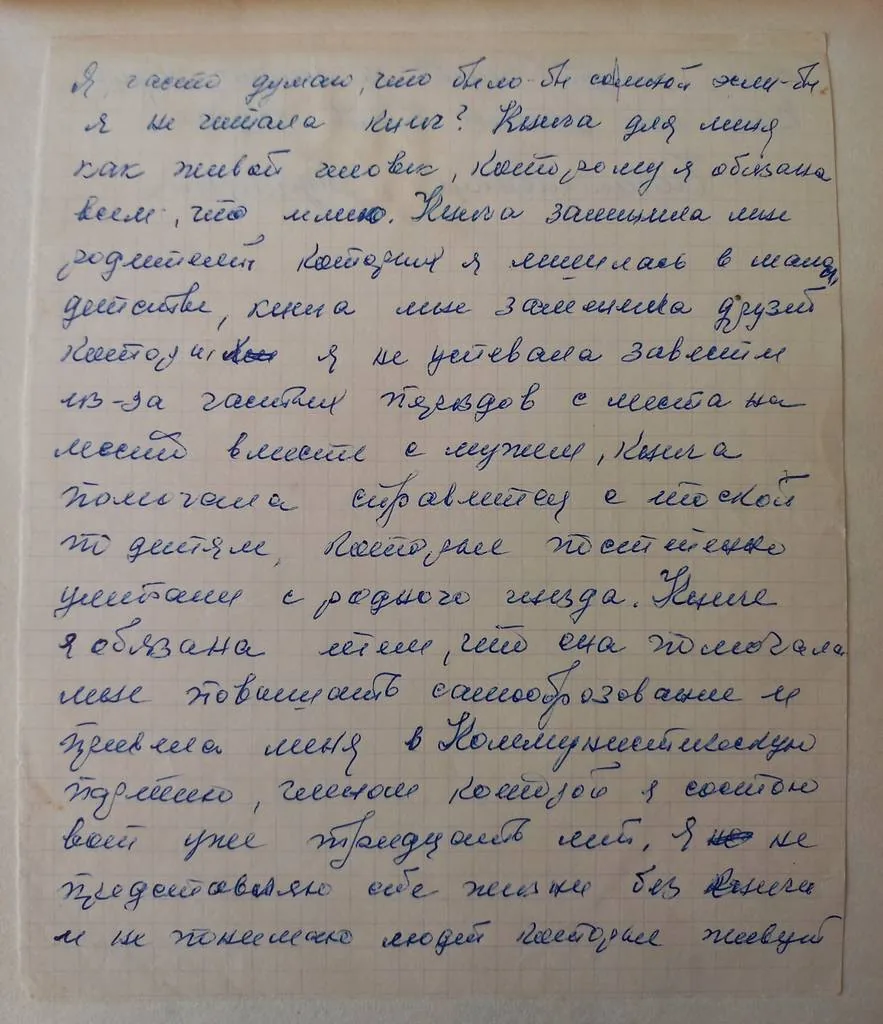 Я часто думаю, что было-бы со мной эсли-бы
я не читала книг? Книга для меня
как живой человек, которому я обязана
всем, что имею. Книга заменила мне
родителей которых я лишилась в малом
детстве, книга мне заменила друзей
которых я не успевала завести
из-за частых переездов с места на
место вместе с мужем, книга
помогала справится с тоской
по детям, которые постепенно
улетали с родного гнезда. Книге
я обязана тем, что она помогала
мне повышать самообразование и
привела меня в Коммунистическую
партию, членом которой я состою
вот уже тридцать лет. Я не не
представляю себе жизни без книги
и не понимаю людей которые живут